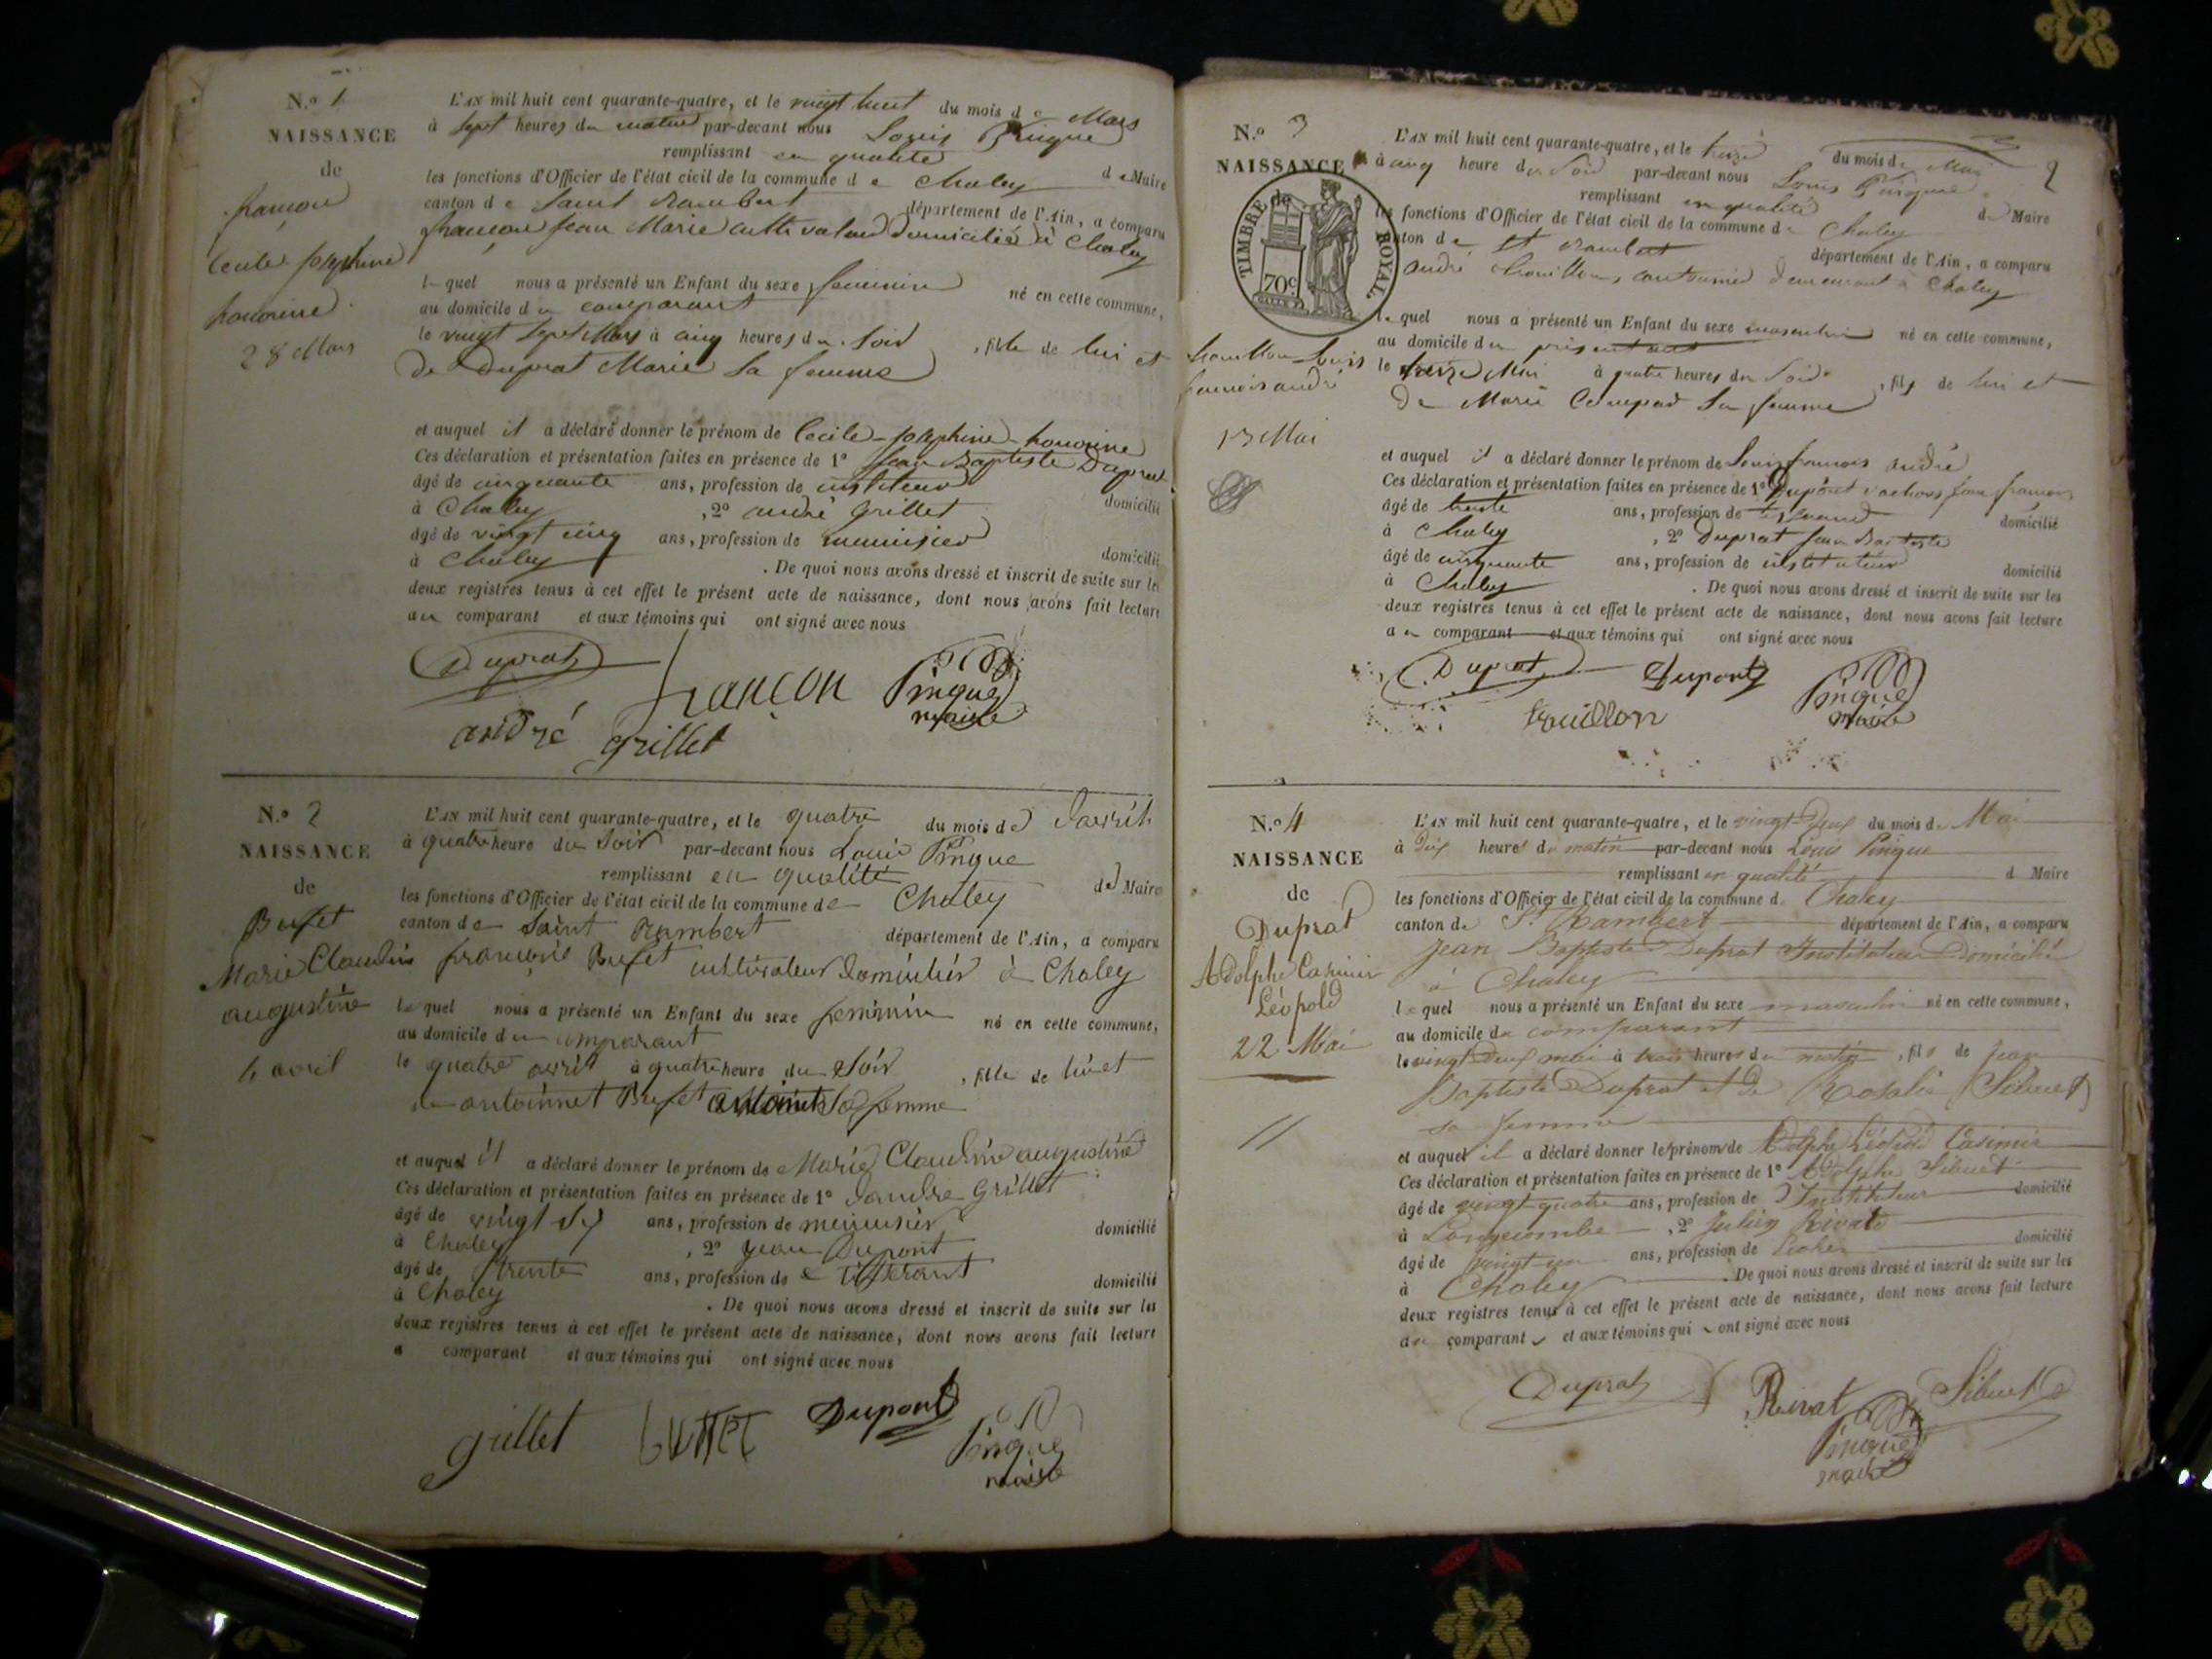 N.o 1
NAISSANCE
de
françon
Cecile Josephine
honorine
28 Mars
L'AN mil huit cent quarante-quatre, et le vingt huit du mois de Mars
à sept heures du matin par-devant nous Louis Pingue
remplissant en qualité de Maire
les fonctions d'Officier de l'état civil de la commune de Chaley
canton de Saint Rambert département de l'Ain, a comparu
françon Jean Marie cultivateur domicilié à Chaley
lequel nous a présenté un Enfant du sexe feminin né en cette commune,
au domicile du comparant
le vingt sept Mars à cinq heures du soir, fille de lui et
de Duprat Marie sa femme
et auquel il a déclaré donner le prénom de Cecile Josephine honorine
Ces déclaration et présentation faites en présence de 1o Jean Baptiste Duprat
âgé de cinquante ans, profession de instituteur domicilié
à Chaley, 2o andré Grillet
âgé de vingt cinq ans, profession de menuisier domicilié
à Chaley. De quoi nous avons dressé et inscrit de suite sur les
deux registres tenus à cet effet le présent acte de naissance, dont nous avons fait lecture
au comparant et aux témoins qui ont signé avec nous
Duprat françon Pingue maire
andré grillet
N.o 2
NAISSANCE
de
Bufet
Marie Claudine
augustine
4 avril
L'AN mil huit cent quarante-quatre, et le quatre du mois d'avril
à quatre heure du soir par-devant nous Louis Pingue
remplissant en qualité de Maire
les fonctions d'Officier de l'état civil de la commune de Chaley
canton de Saint Rambert département de l'Ain, a comparu
françois Bufet cultivateur domicilié à Chaley
lequel nous a présenté un Enfant du sexe feminin né en cette commune,
au domicile du comparant
le quatre avril à quatre heure du soir, fille de lui et
de antoinnet Bufet sa femme
et auquel il a déclaré donner le prénom de Marie Claudine augustine
Ces déclaration et présentation faites en présence de 1o Grillet
âgé de vingt ans, profession de menuisier domicilié
à Chaley, 2o Jean Dupont
âgé de trente ans, profession de tisserant domicilié
à Chaley. De quoi nous avons dressé et inscrit de suite sur les
deux registres tenus à cet effet le présent acte de naissance, dont nous avons fait lecture
a comparant et aux témoins qui ont signé avec nous
grillet buffet Dupont Pingue maire
2
N.o 3
NAISSANCE
de
TIMBRE ROYAL 70c.
Louis
francois andré
13 Mai
L'AN mil huit cent quarante-quatre, et le treize du mois de Mai
à cinq heure du soir par-devant nous Louis Pingue
remplissant en qualité de Maire
les fonctions d'Officier de l'état civil de la commune de Chaley
canton de St Rambert département de l'Ain, a comparu
andré demeurant à Chaley
lequel nous a présenté un Enfant du sexe masculin né en cette commune,
au domicile du présentant
le treize Mai à quatre heures du soir, fils de lui et
de Marie sa femme
et auquel il a déclaré donner le prénom de Louis francois andré
Ces déclaration et présentation faites en présence de 1o Dupont
âgé de trente ans, profession de tisserand domicilié
à Chaley, 2o Duprat Jean Baptiste
âgé de cinquante ans, profession de instituteur domicilié
à Chaley. De quoi nous avons dressé et inscrit de suite sur les
deux registres tenus à cet effet le présent acte de naissance, dont nous avons fait lecture
au comparant et aux témoins qui ont signé avec nous
Duprat Dupont Pingue maire
N.o 4
NAISSANCE
de
Duprat
Adolphe Casimir
Léopold
22 Mai
L'AN mil huit cent quarante-quatre, et le vingt deux du mois de Mai
à Dix heures du matin par-devant nous Louis Pingue
remplissant en qualité d Maire
les fonctions d'Officier de l'état civil de la commune de Chaley
canton de St Rambert département de l'Ain, a comparu
Jean Baptiste Duprat Instituteur Domicilié
à Chaley
lequel nous a présenté un Enfant du sexe masculin né en cette commune,
au domicile du comparant
le vingt deux mai à trois heures du matin, fils de Jean
Baptiste Duprat et de Rosalie Sibuet
sa femme
et auquel il a déclaré donner le prénom de Adolphe Léopold Casimir
Ces déclaration et présentation faites en présence de 1o Adolphe Sibuet
âgé de vingt quatre ans, profession de d'Instituteur domicilié
à Longecombe, 2o Julien Rivat
âgé de vingt un ans, profession de domicilié
à Chaley. De quoi nous avons dressé et inscrit de suite sur les
deux registres tenus à cet effet le présent acte de naissance, dont nous avons fait lecture
au comparant et aux témoins qui ont signé avec nous
Duprat Rivat Sibuet
Pingue maire